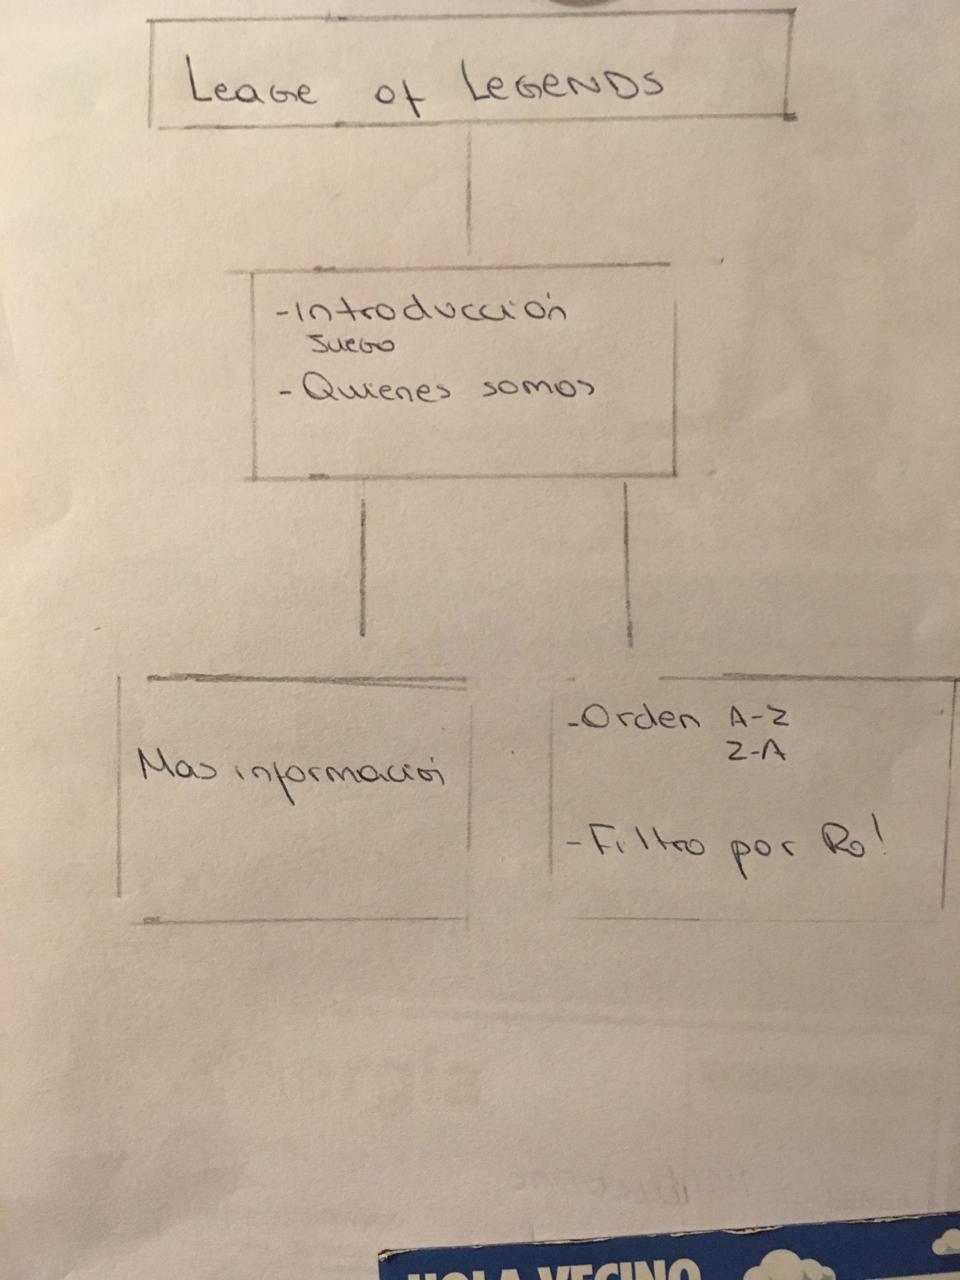 Leage of LEGENDS
-Introducción
Juego
-Quienes somos
Mas información
-Orden A-Z
Z-A
-Filtro por Rol
HOLA VECINO